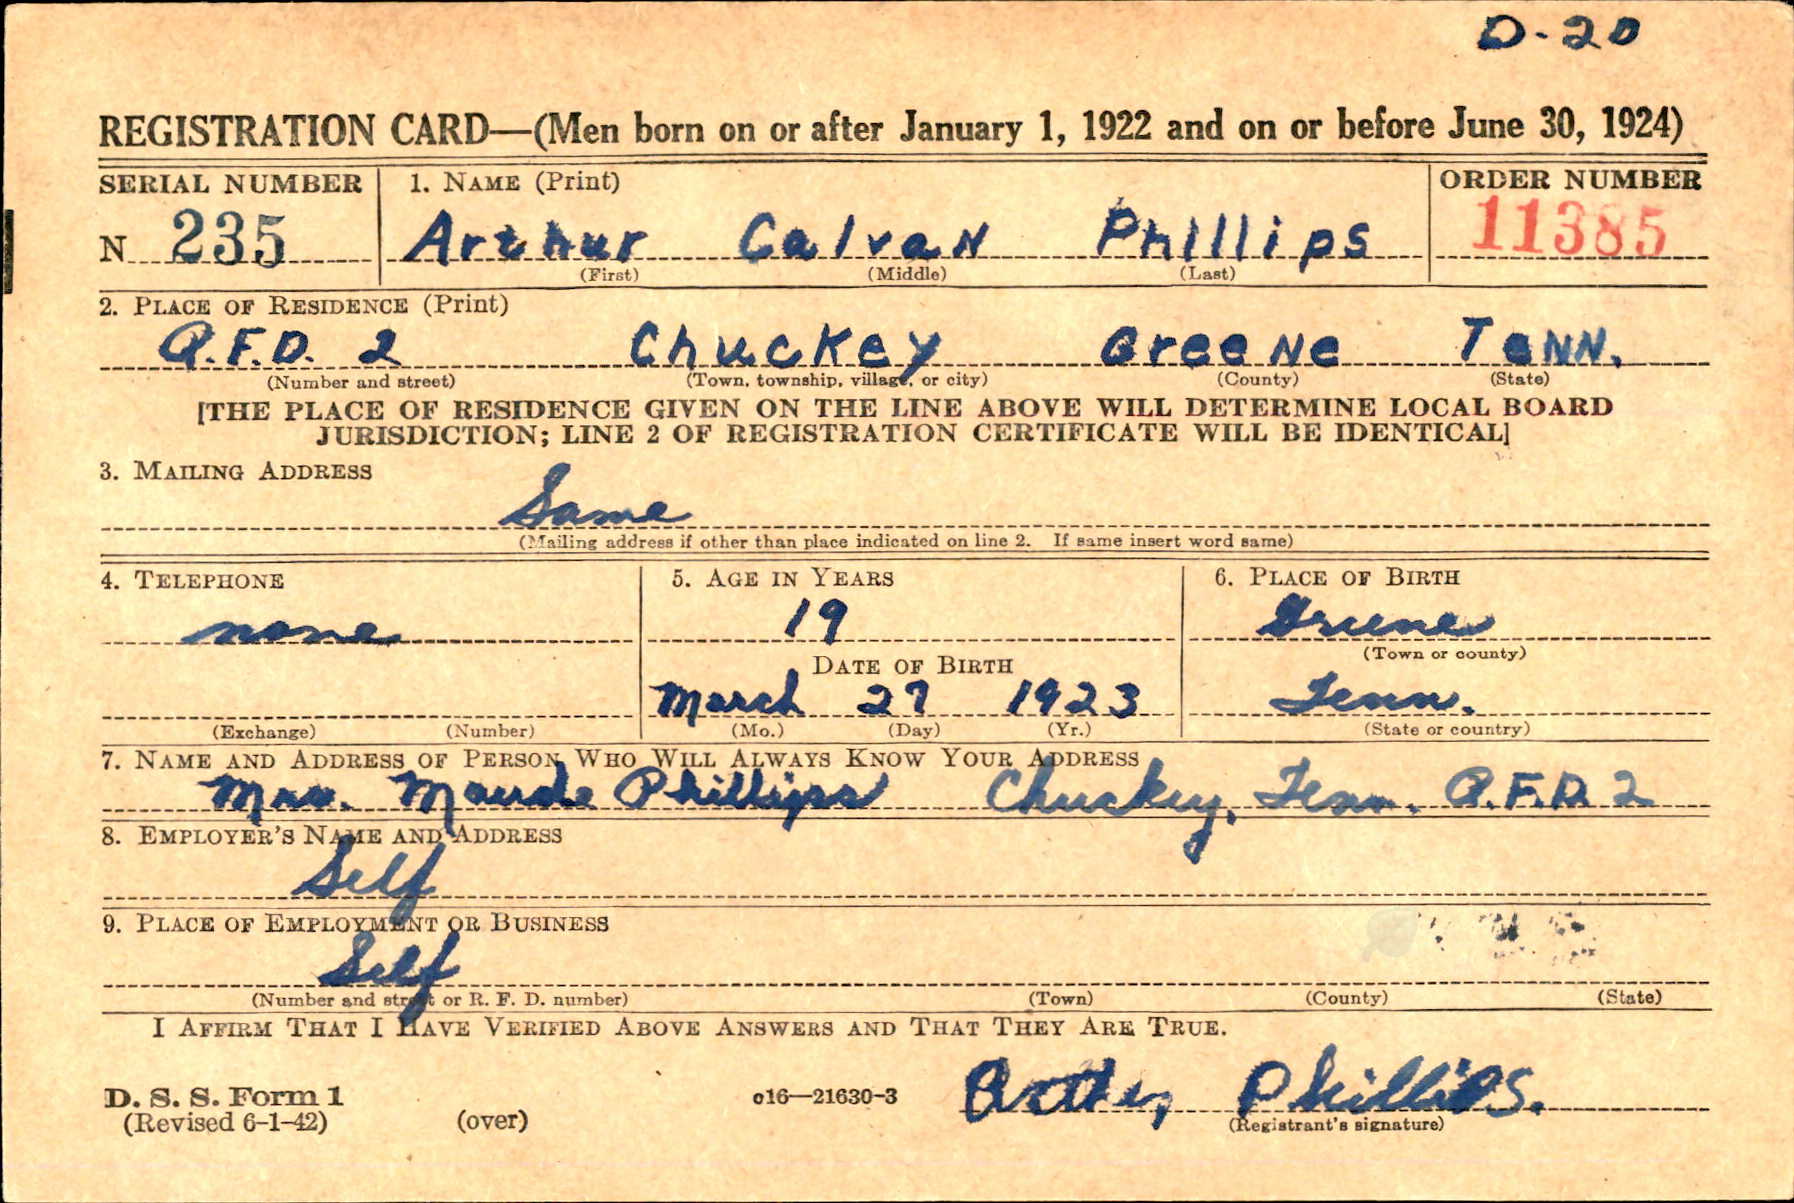 D-20
REGISTRATION CARD—(Men born on or after January 1, 1922 and on or before June 30, 1924)
SERIAL NUMBER 1. NAME (Print) ORDER NUMBER
N 235 Arthur Calvan Phillips 11385
(First) (Middle) (Last)
2. PLACE OF RESIDENCE (Print)
R.F.D. 2 Chuckey Greene Tenn.
(Number and street) (Town, township, village, or city) (County) (State)
[THE PLACE OF RESIDENCE GIVEN ON THE LINE ABOVE WILL DETERMINE LOCAL BOARD
JURISDICTION; LINE 2 OF REGISTRATION CERTIFICATE WILL BE IDENTICAL]
3. MAILING ADDRESS
Same
(Mailing address if other than place indicated on line 2. If same insert word same)
4. TELEPHONE 5. AGE IN YEARS 6. PLACE OF BIRTH
none 19 Greene
(Town or county)
DATE OF BIRTH
March 27 1923 Tenn.
(Exchange) (Number) (Mo.) (Day) (Yr.) (State or country)
7. NAME AND ADDRESS OF PERSON WHO WILL ALWAYS KNOW YOUR ADDRESS
Mrs. Maude Phillips Chuckey, Tenn. R.F.D. 2
8. EMPLOYER'S NAME AND ADDRESS
Self
9. PLACE OF EMPLOYMENT OR BUSINESS
Self
(Number and street or R. F. D. number) (Town) (County) (State)
I AFFIRM THAT I HAVE VERIFIED ABOVE ANSWERS AND THAT THEY ARE TRUE.
D. S. S. Form 1
(Revised 6-1-42) (over) c16—21630-3 Phillips.
(Registrant's signature)